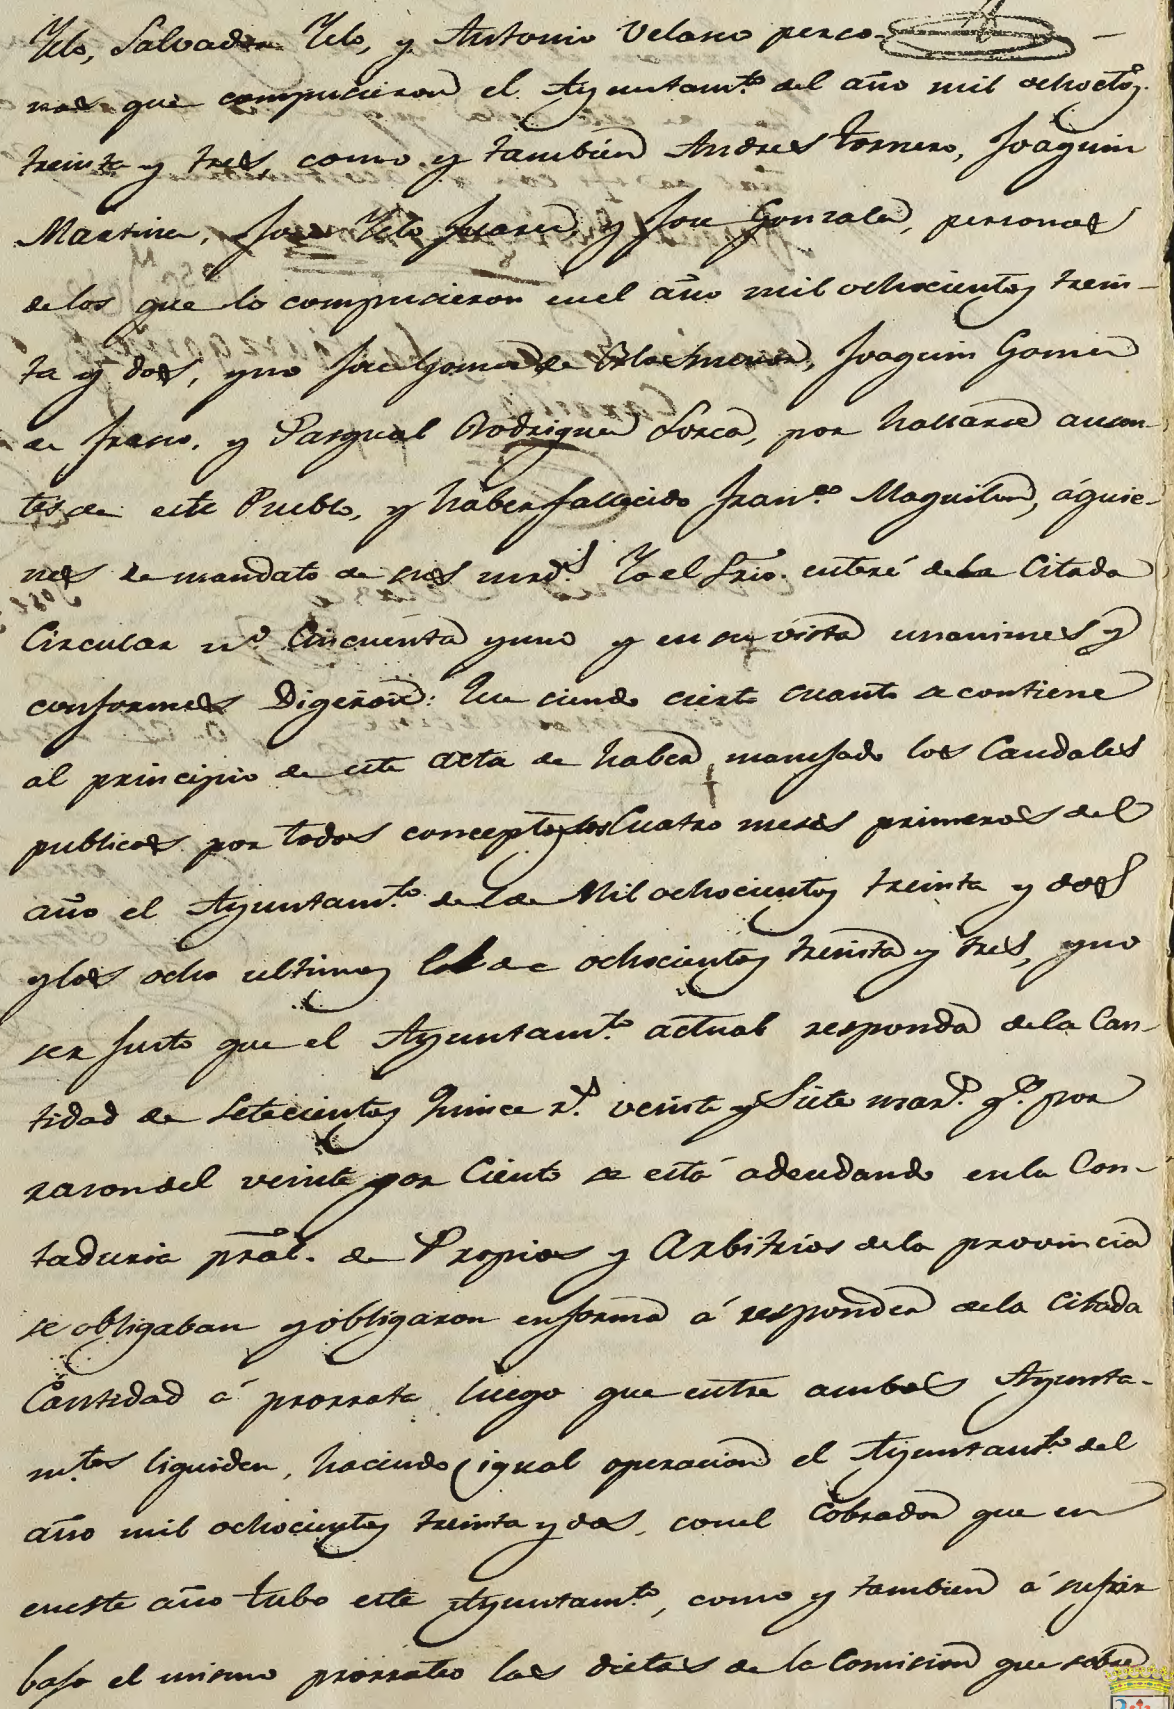 Yelo, Salvador Yelo, y Antonio Velano perso-
nas que compucieron el Ayuntam.to del año mil ochoctos.
treinta y tres, como y tambien Andres Tornero, Joaquin
Martinez, Jose Yelo Juarez y Jose Gonzalez, personas
delos que lo compucieron enel año mil ochocientos trein-
ta y dos, yno Jose Gomez de Joaquin Gomez
de Frano. y Pasqual Rodriguez Lorca, por hallarse ausen-
tes de este Pueblo, y haber fallecido Fran.co Maquilon, á quie-
nes de mandato de sus mrd.s Yo el Srio. enteré dela Citada
Circular n.o Cincuenta yuno y en su vista unanimes y
conformes Digeron: Que siendo cierto cuanto se contiene
al principio de este Acta de haber manejado los Caudales
publicos por todos conceptos los Cuatro meses primeros del
año el Ayuntam.to de la de Mil ochocientos treinta y dos
ylos ocho ultimos el de ochocientos treinta y tres, yno
ser justo que el Ayuntam.to actual responda dela Can-
tidad de Setecientos Quince r.s veinte y Siete mar.s q.e por
razon del veinte por Ciento se está adeudando enla Con-
taduria pral. de Propios y Arbitrios dela provincia
se obligaban yobligaron enforma á responder dela citada
Cantidad á prorrata luego que entre ambos Ayunta-
m.tos liquiden, haciendo igual operacion el Ayuntam.to del
año mil ochocientos treinta y dos, conel Cobrador que en
eneste año tubo este Ayuntam.to, como y tambien á sufrir
bajo el mismo prorrateo las dietas de la Comision que sobre